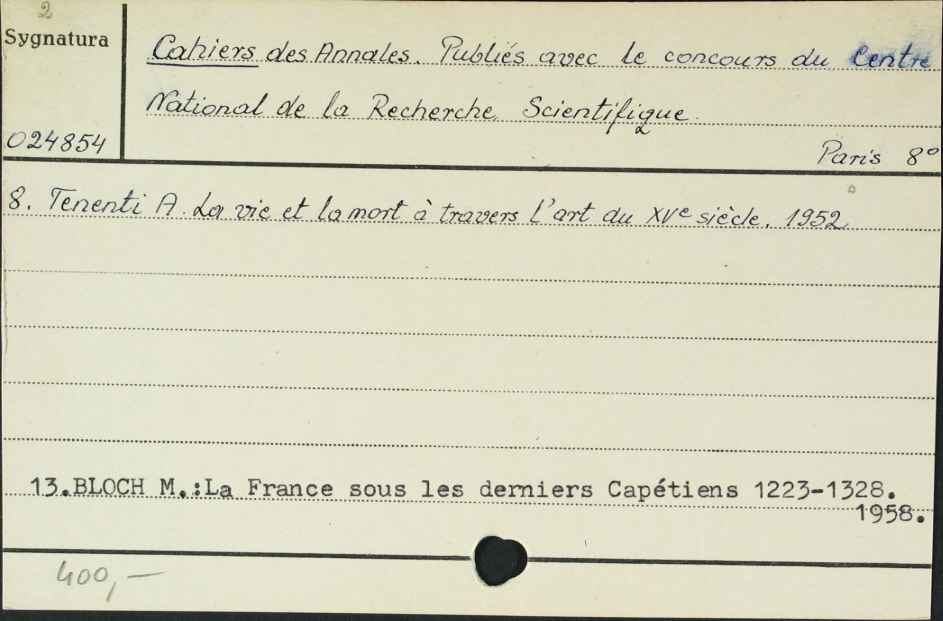 2
Sygnatura
Cahiers des Annales. Publiés avec le concours du Centre
National de la Recherche Scientifique
024854
Paris 8°
8. Tenenti A. La vie et la mort à travers l'art du XVe siècle. 1952
13.BLOCH M.:La France sous les derniers Capétiens 1223-1328.
1958.
400,—